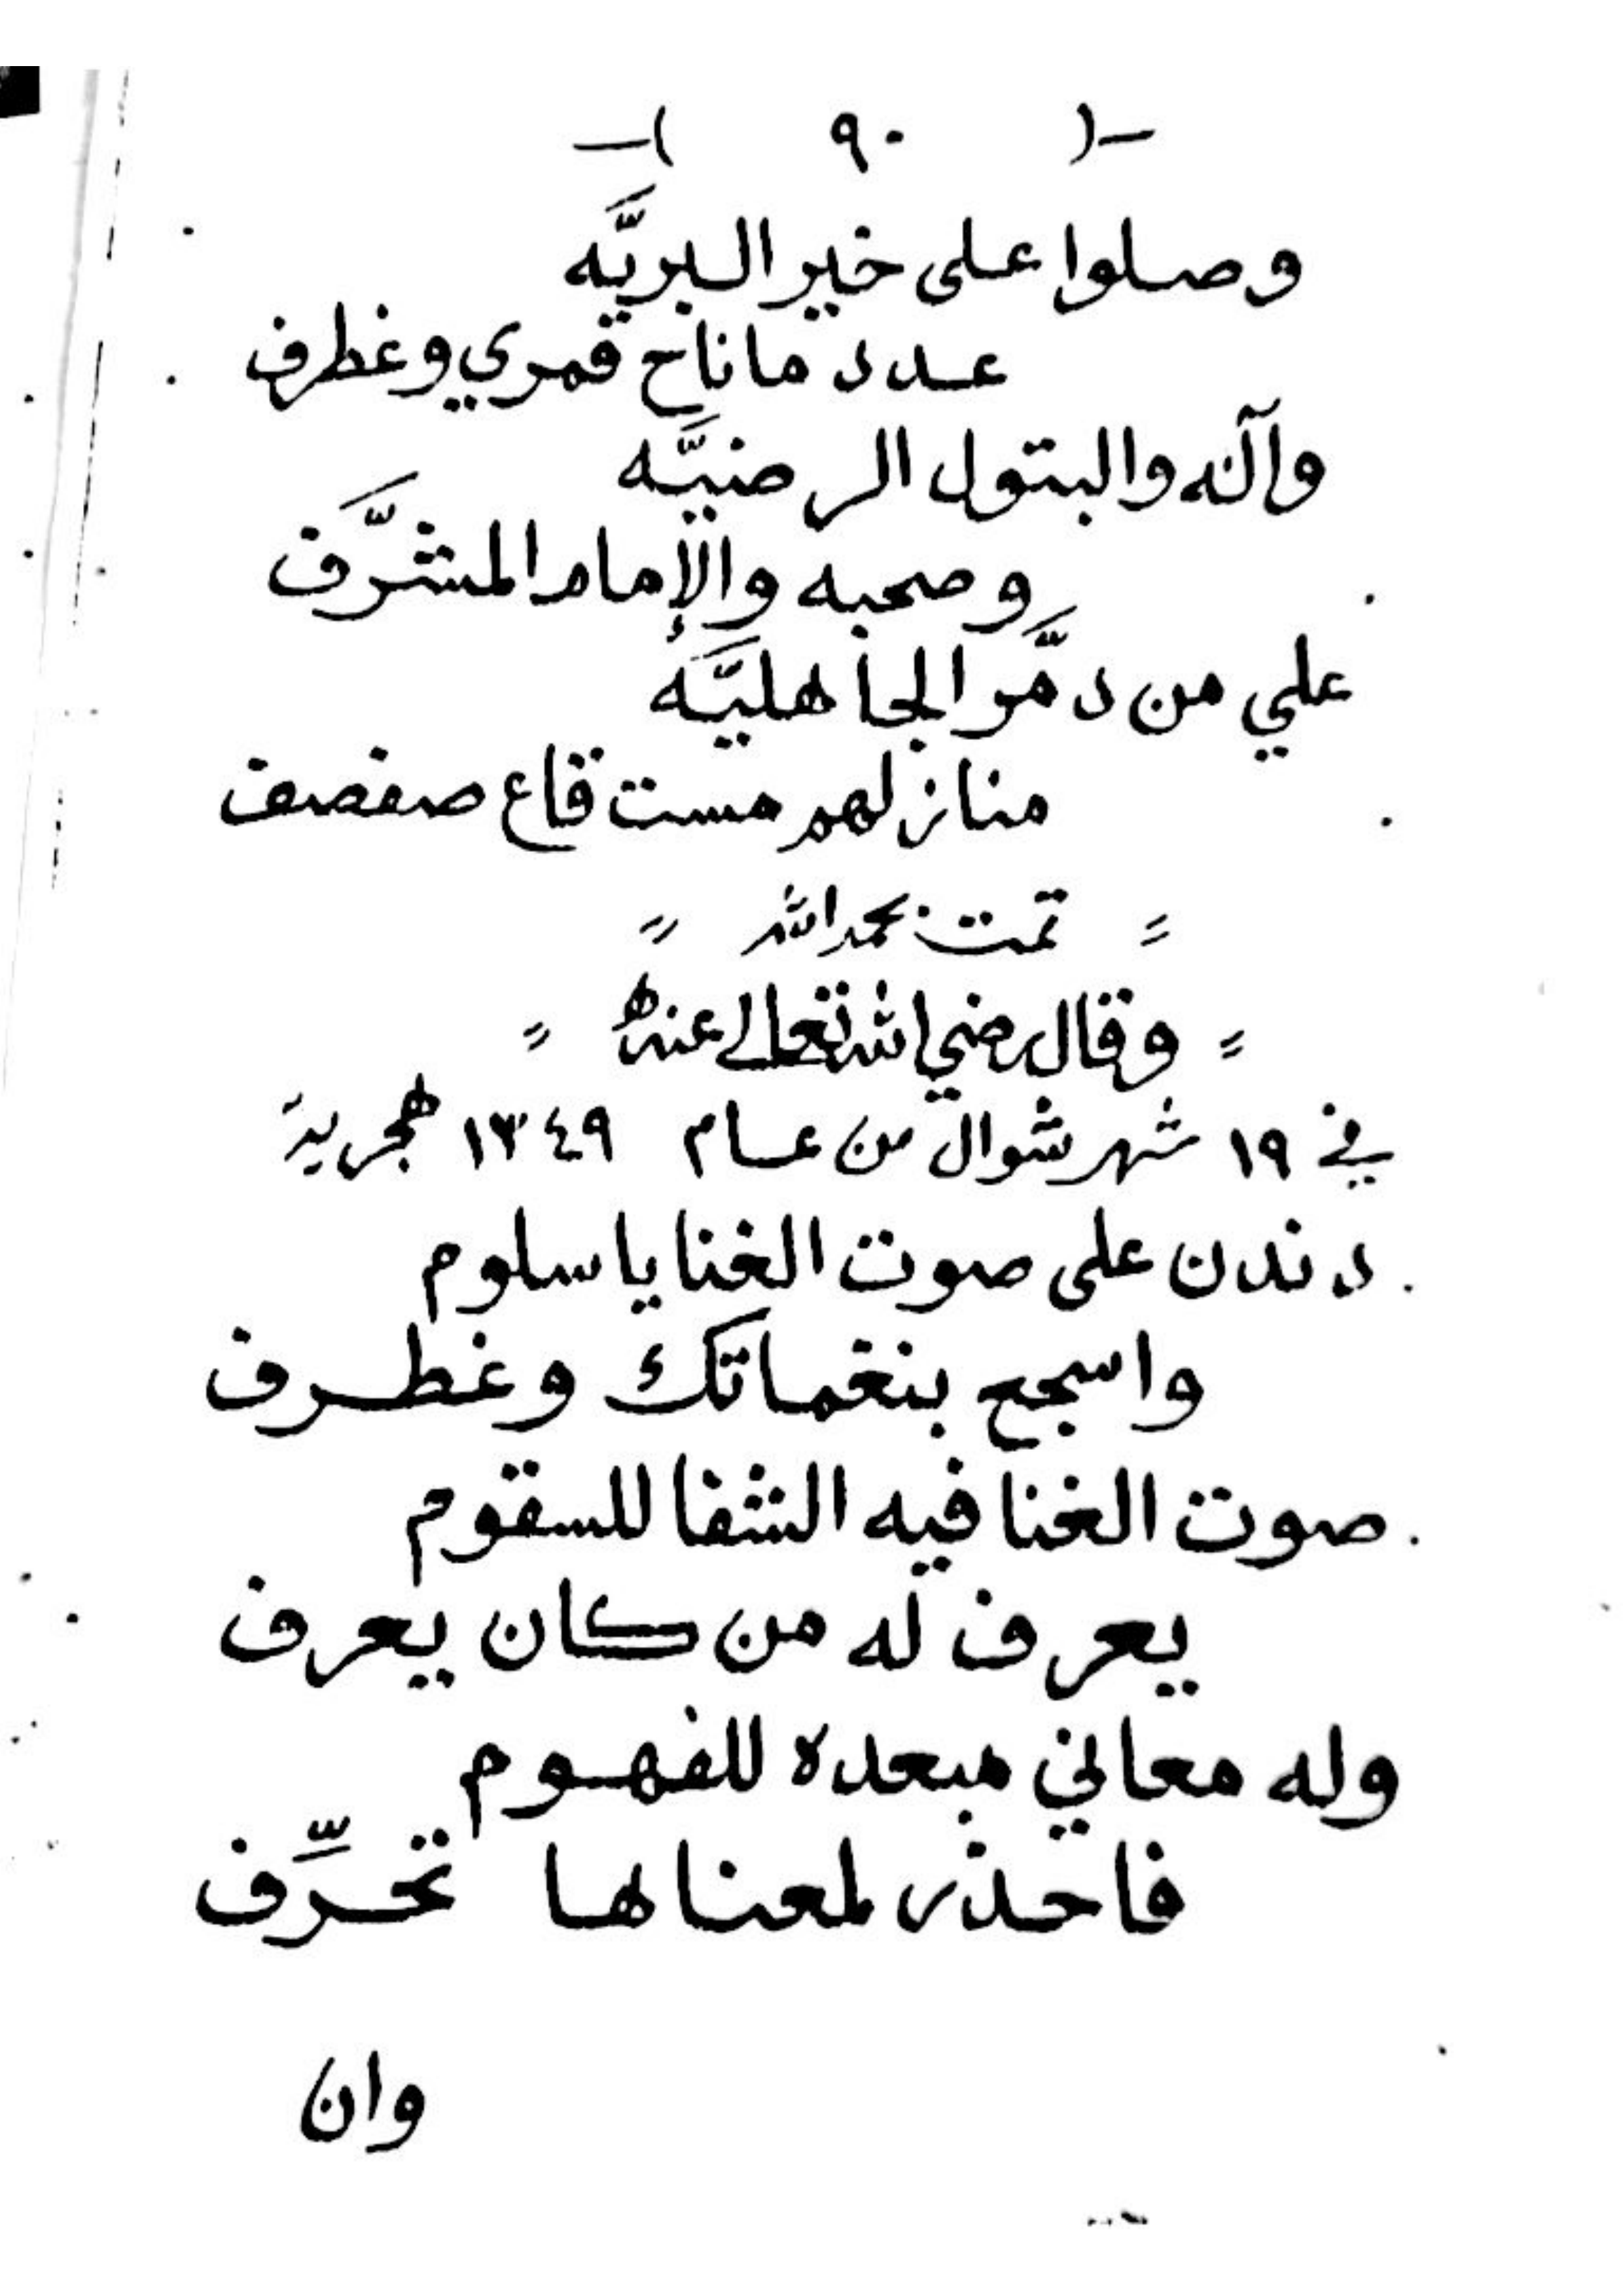 -( ٩٠ )-
وصلوا على خير البريَّه
عدد ما ناح قمري وغطرف
وآله والبتول الرضيَّه
وصحبه والإمام المشرَّف
علي من دمَّر الجاهليَّه
منازلهم مست قاع صفصف
= تمت بحمد الله =
= وقال رضي الله تعالى عنه =
في ١٩ شهر شوال من عام ١٣٤٩ هجرية
دندن على صوت الغنا يا سلوم
واسجع بنغماتك وغطرف
صوت الغنا فيه الشفا للسقوم
يعرف له من كان يعرف
وله معاني مبعده للفهوم
فاحذر لمعناها تحرِّف
وان